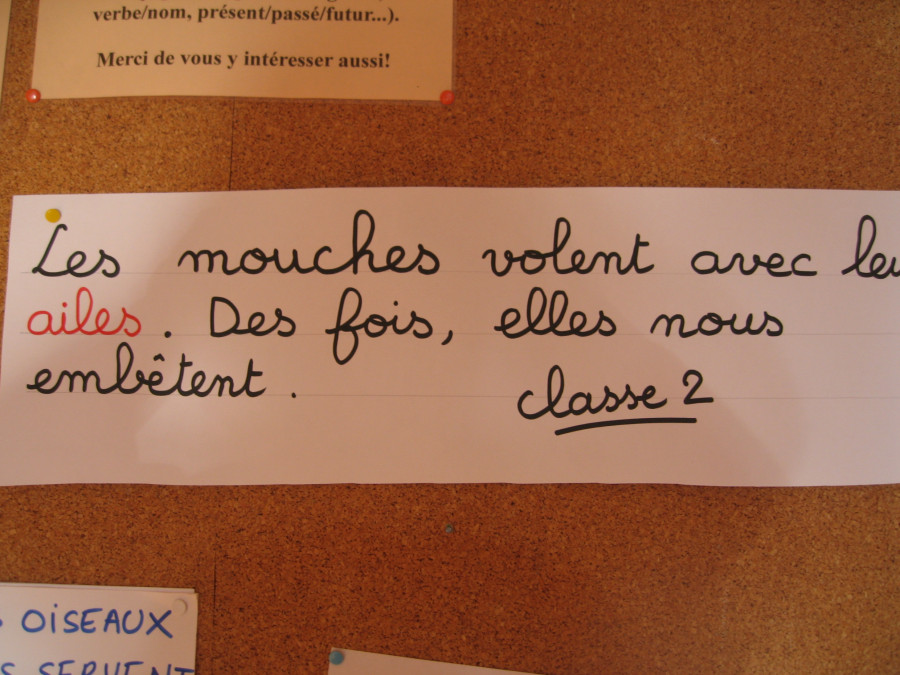 verbe/nom, présent/passé/futur...).
Merci de vous y intéresser aussi!
Les mouches volent avec
ailes. Des fois, elles nous
embêtent.
classe 2
OiSEAUX
SERVENT